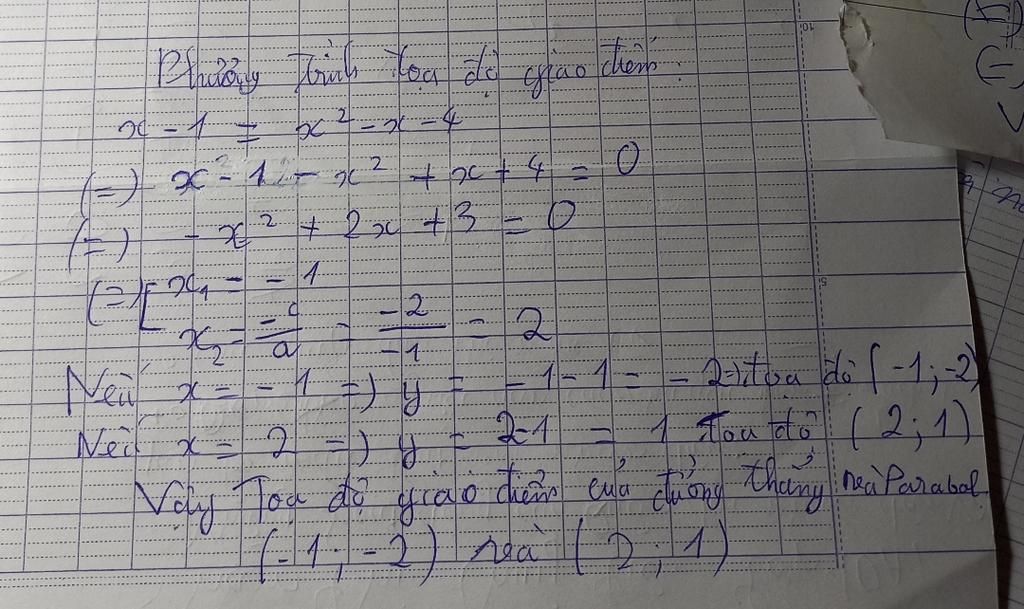 Phương trình tọa độ giao điểm
x - 1 = x² - x - 4
(=) x - 1 - x² + x + 4 = 0
(=) - x² + 2x + 3 = 0
(=) [ x₁ = - 1
x₂ = -c/a = -2/-1 = 2
Nếu x = - 1 =) y = - 1 - 1 = - 2 =) tọa độ (-1; -2)
Nếu x = 2 =) y = 2-1 = 1 tọa độ (2; 1)
Vậy Tọa độ giao điểm của đường thẳng và Parabol
(-1; -2) và (2; 1)
10
5
(=)
(=)